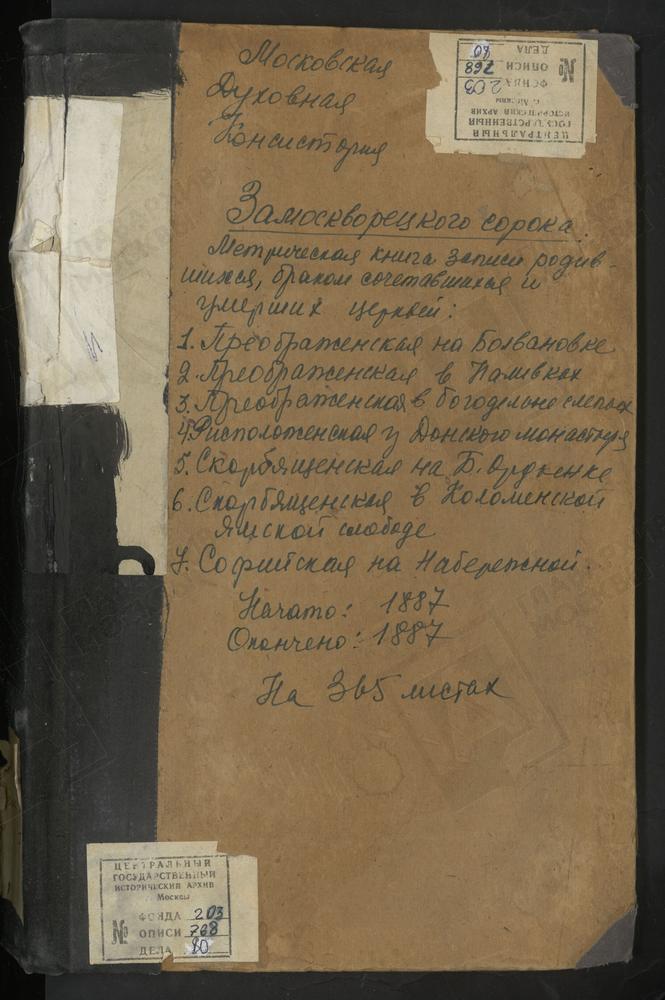 Московская
Духовная
Консистория
ЦЕНТРАЛЬНЫЙ
ГОСУДАРСТВЕННЫЙ
ИСТОРИЧЕСКИЙ АРХИВ
г. Москвы
№ ФОНДА 203
ОПИСИ 768
ДЕЛА 80
Замоскворецкого сорока.
Метрическая книга записи родив-
шихся, браком сочетавшихся и
умерших церквей:
1. Преображенская на Болвановке
2. Преображенская в Наливках
3. Преображенская в богодельне слепых
4. Рисположенская у Донского монастыря
5. Скорбященская на Б. Ордынке
6. Скорбященская в Коломенской
Ямской слободе
7. Софийская на Набережной.
Начато: 1887
Окончено: 1887
На 365 листах
ЦЕНТРАЛЬНЫЙ
ГОСУДАРСТВЕННЫЙ
ИСТОРИЧЕСКИЙ АРХИВ
г. Москвы
№ ФОНДА 203
ОПИСИ 768
ДЕЛА 80